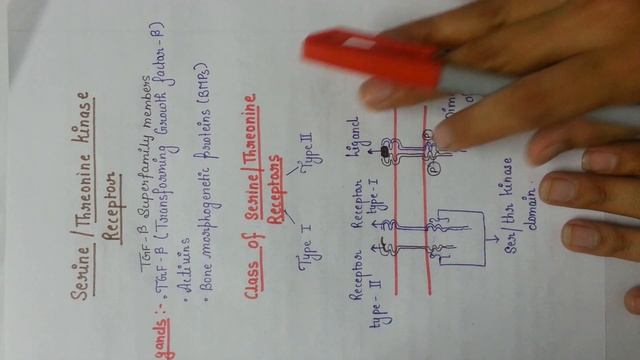 Serine/Threonine kinase
Receptor
TGF-β Superfamily members
gands:- • TGF-β (Transforming Growth factor-β)
• Activins
• Bone morphogenetic proteins (BMPs)
Class of Serine/Threonine
Receptors
Type I
Type II
Receptor
type-II
Receptor
type-I
Ligand
P
P
Ser/thr kinase
domain